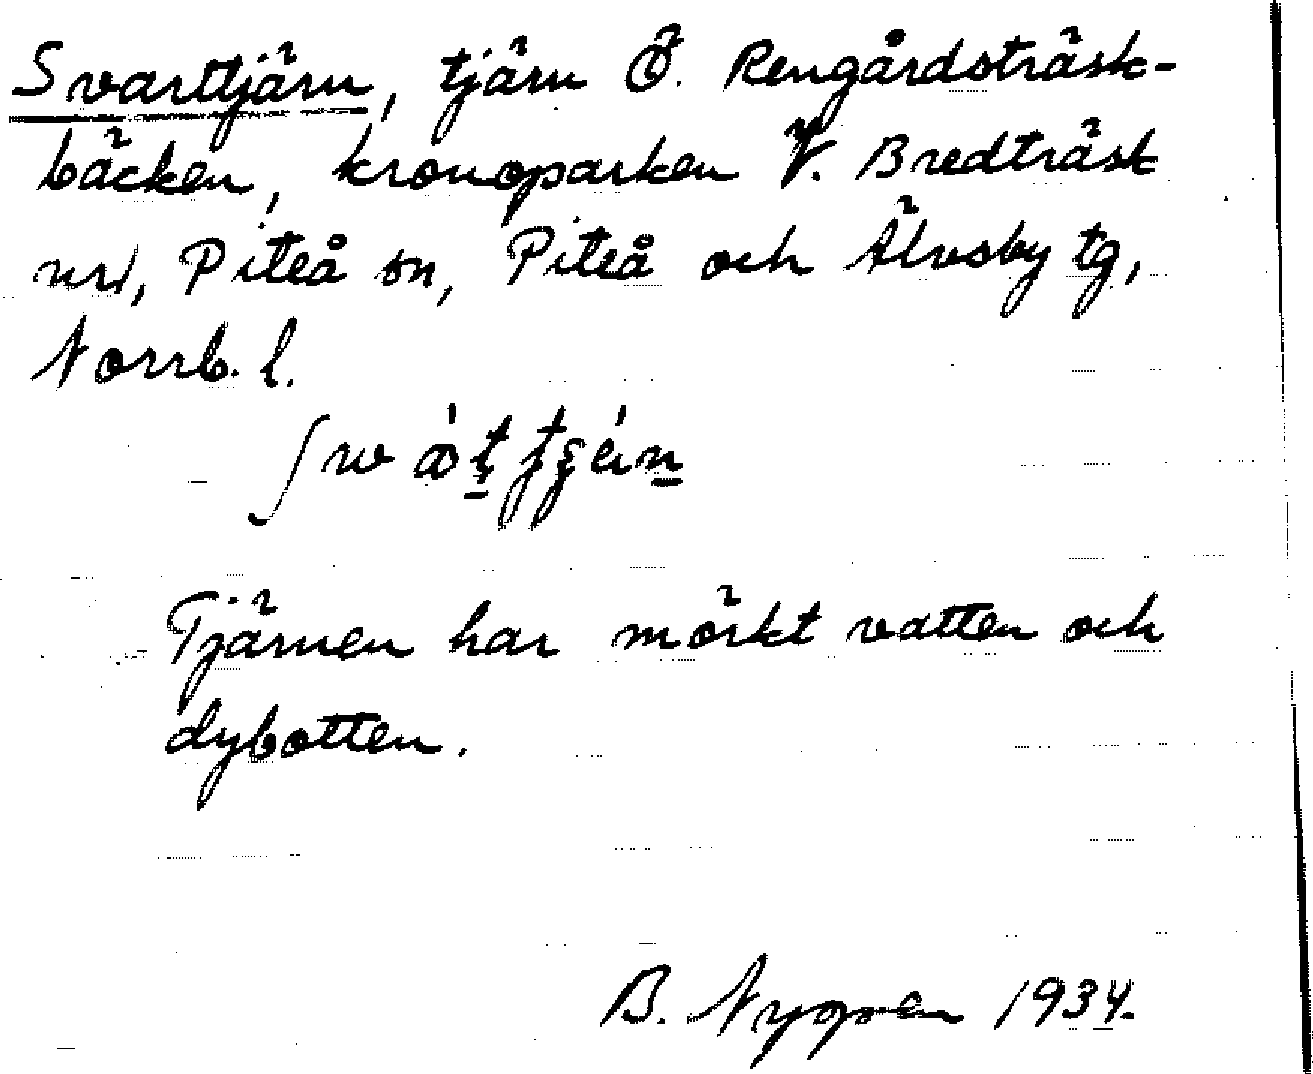 Svarttjärn, tjärn Ö. Rengårdsträsk-
bäcken, kronoparken V. Bredträsk
nr1, Piteå sn, Piteå och Älvsby tg,
Norrb. l.
Tjärnen har mörkt vatten och
dybotten.
B. Nygren 1934.